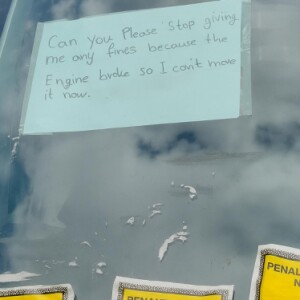 Can you Please stop giving
me any fines because the
Engine broke so I can't move
it now.
PENAL
N
PENAL